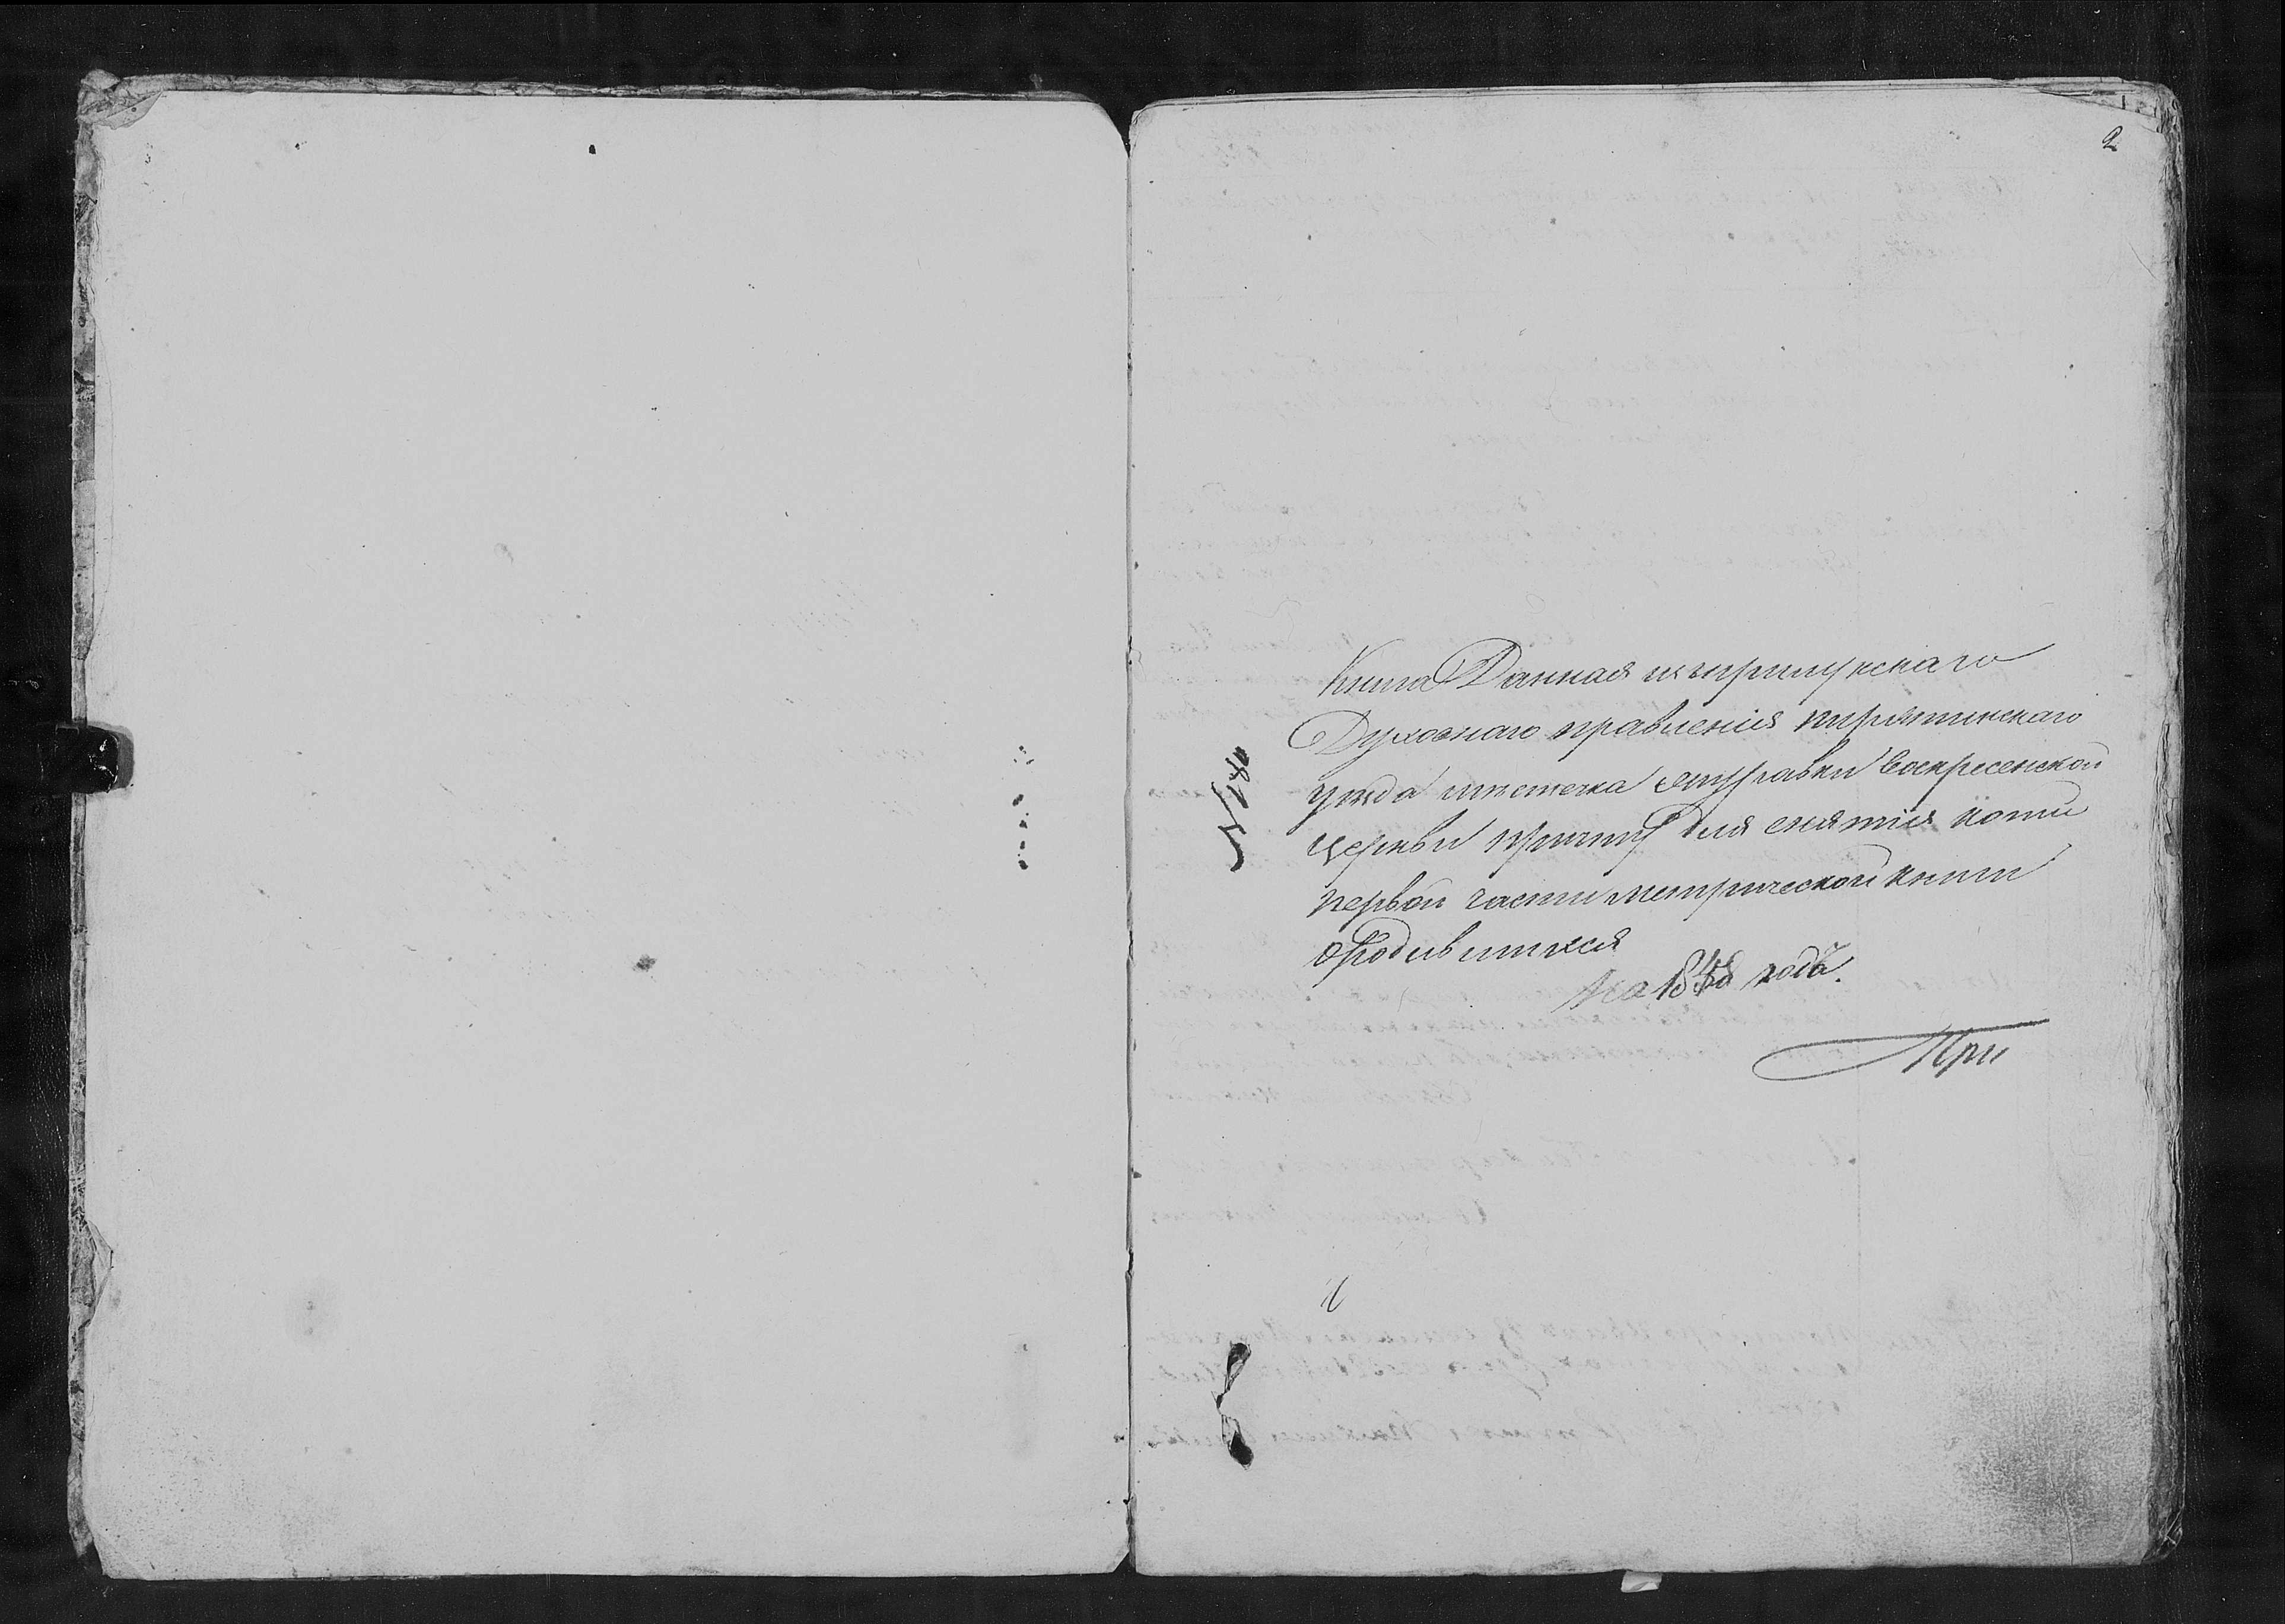 2
Книга Данная изъ прилукскаго
Духовнаго правленія пирятинскаго
уезда местечка Яготовки Воскресенской
церкви причту Для снятія копіи
первой части метрической книги
о Родившихся
на 1848 годъ.
При